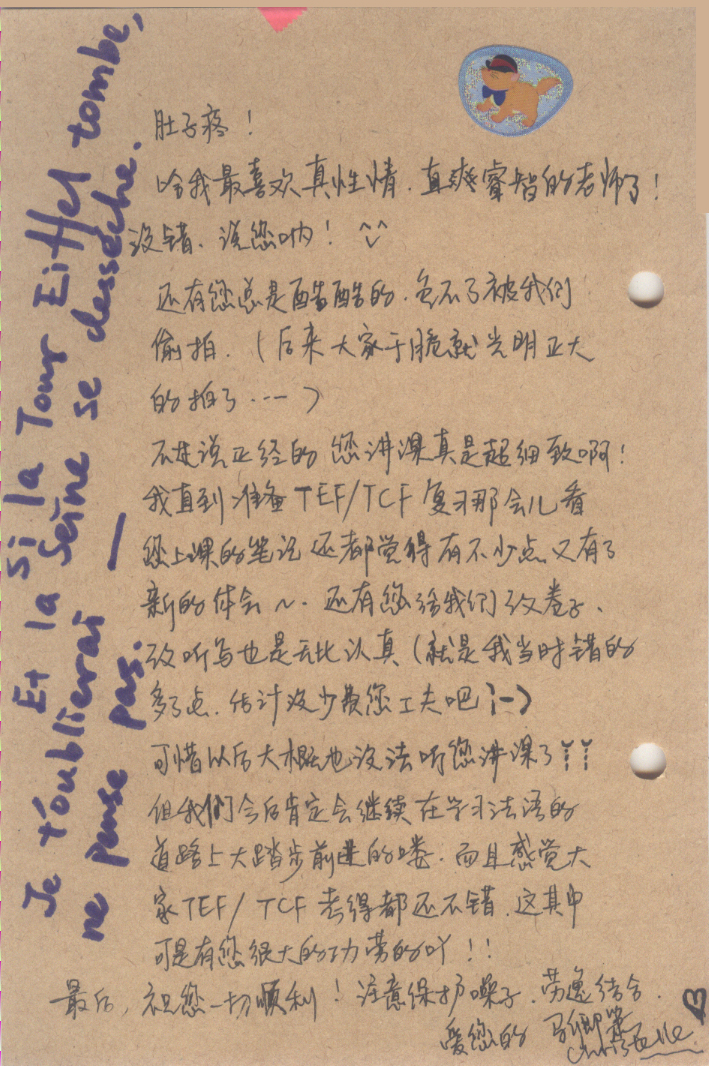 Si la Tour Eiffel tombe,
Et la Seine se dessèche.
Je t'oublierai —
ne pense pas.
肚子疼！
哈我最喜欢真性情、直爽睿智的老师了！
没错、说您呐！^^
还有您总是酷酷的、免不了被我们
偷拍.（后来大家干脆就光明正大
的拍了……）
不过说正经的 您讲课真是超细致啊！
我直到准备TEF/TCF复习那会儿看
您上课的笔记 还都觉得有不少点又有了
新的体会~. 还有您给我们改卷子、
改听写也是无比认真（就是我当时错的
多了点、估计没少费您工夫吧 }-)
可惜以后大概也没法听您讲课了TT
但我们今后肯定会继续在学习法语的
道路上大踏步前进的喽. 而且感觉大
家TEF/TCF考得都还不错、这其中
可是有您很大的功劳的吖！！
最后, 祝您一切顺利！注意保护嗓子、劳逸结合.
爱您的